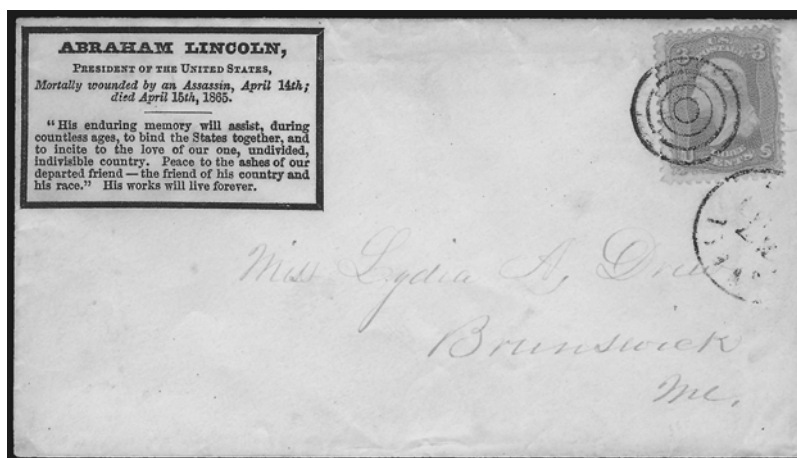 ABRAHAM LINCOLN,
PRESIDENT OF THE UNITED STATES,
Mortally wounded by an Assassin, April 14th;
died April 15th, 1865.
"His enduring memory will assist, during
countless ages, to bind the States together, and
to incite to the love of our one, undivided,
indivisible country. Peace to the ashes of our
departed friend—the friend of his country and
his race." His works will live forever.
3 3
U S
CENTS
Miss Lydia A. Drew
Brunswick
Me.